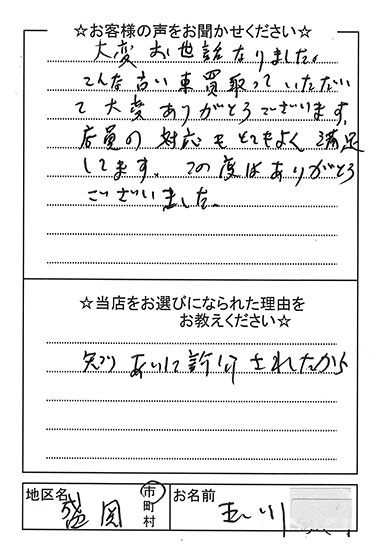 ☆お客様の声をお聞かせください☆
大変お世話なりました。
こんな古い車買取っていただい
て大変ありがとうございます。
店員の対応もとてもよく満足
してます。この度はありがとう
ございました。
☆当店をお選びになられた理由を
お教えください☆
知りあいに紹介されたから
地区名 盛岡 市町村 お名前